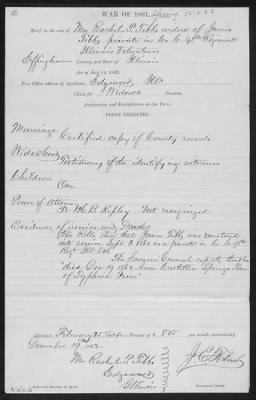 WAR OF 1861.
Brief in the case of Mrs Rachel P. Tibbs widow of James
Tibbs private in Co. C. 98th Regiment
Illinois Volunteers
Effingham County, and State of Illinois
Act of July 14, 1862.
Post Office address of Applicant, Edgewood, Ills
Claim for Widows Pension.
Declaration and Identification in Due Form.
PROOF EXHIBITED.
Marriage
Certified copy of County records
Widowhood
Testimony of the identifying witnesses
Children
One
Power of Attorney
To J.B. Ripley. Not recognized
Evidence of service and Death
The Rolls show that James Tibbs was mustered
into service Sept. 3 1862 as a private in Co. C 98th
Regt Ill Vols
The Surgeon General reports that he
"died Dec 19 1862 from
of Typhoid Fever"
Admitted February 25, to a Pension of $ 8.00 per month, commencing
December 19th 1862
Mrs Rachel P. Tibbs
Edgewood
Illinois
Name and Residence of Agent.
Examining Clerk.